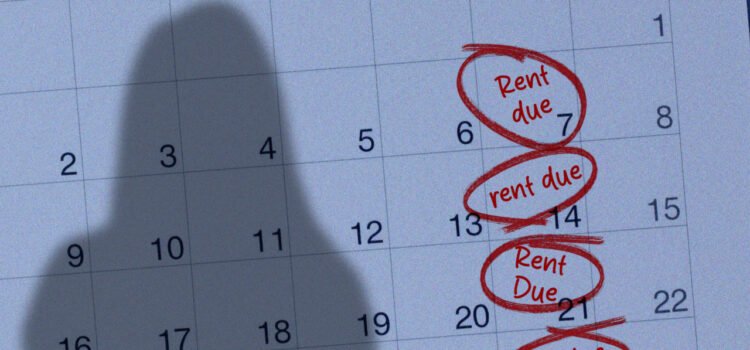 1
Rent
due
2 3 4 5 6 7 8
rent due
9 10 11 12 13 14 15
Rent
Due
16 17 18 19 20 21 22